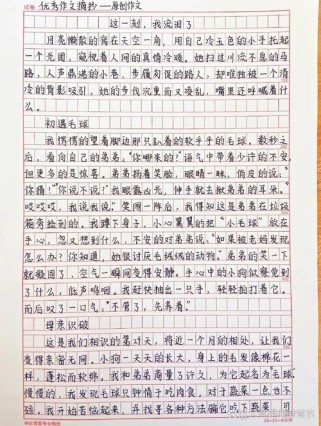 优秀作文摘抄——原创作文
这一刻,我流泪了
月亮懒散的窝在天空一角,用自己冷玉色的小手托起
一个光团,窥视着人间的真情冷暖。她扫过川流不息的马
路,人声鼎沸的小巷,步履匆促的路人,却唯独被一个清
冷的背影吸引,她的步伐沉重而又凌乱,嘴里还呼喊着什
么。
初遇毛球
我愣愣的望着脚边那只趴着的软乎乎的毛球。数秒之
后,看向自己的弟弟,“你哪来的?”语气中带着少许的不安,
但更多的是惊喜。弟弟扬着笑脸,眼睛一眯,俏皮的说:“
你猜!”“你说不说?”我眼露凶光,伸手就去揪弟弟的耳朵。“
哎哎哎,我说我说。”笑闹一阵后,我得知这是弟弟在垃圾
箱旁捡到的。我蹲下身子,小心翼翼的把“小毛球”放在
手心,忽又想到什么,不安的对弟弟说:“如果被老妈发现
怎么办?你知道,她很讨厌毛绒绒的动物。”弟弟的笑一下
就凝固了,空气一瞬间变得安静,手心中的小狗似察觉到
了什么,低声呜咽。我赶快抽出一只手,轻轻拍打着它。
而后叹了一口气:“不管了,先养着。”
母亲识破
这是我们相识的第廿天,将近一个月的相处,让我们
变得亲密无间。小狗一天天的长大,身上的毛发像棉花一
样,蓬松而软绵。我和弟弟商量了许久,为它起名为毛球
慢慢的,我发现毛球只钟情于吃肉食,对于蔬菜一点也不
碰。我开始苦恼起来,并找寻各种方法骗它吃下蔬菜,可